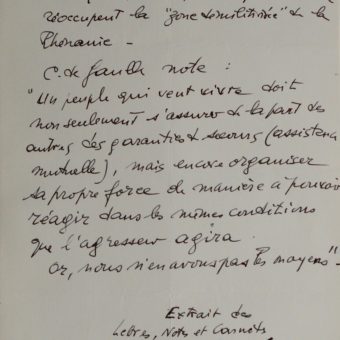 réoccupent la "zone démilitarisée" de la
Rhénanie -
C. de Gaulle note :
"Un peuple qui veut vivre doit
non seulement s'assurer de la part des
autres des garanties de secours (assistance
mutuelle), mais encore organiser
sa propre force de manière à pouvoir
réagir dans les mêmes conditions
que l'agresseur agira.
Or, nous n'en avons pas les moyens" -
Extrait des
Lettres, Notes et Carnets